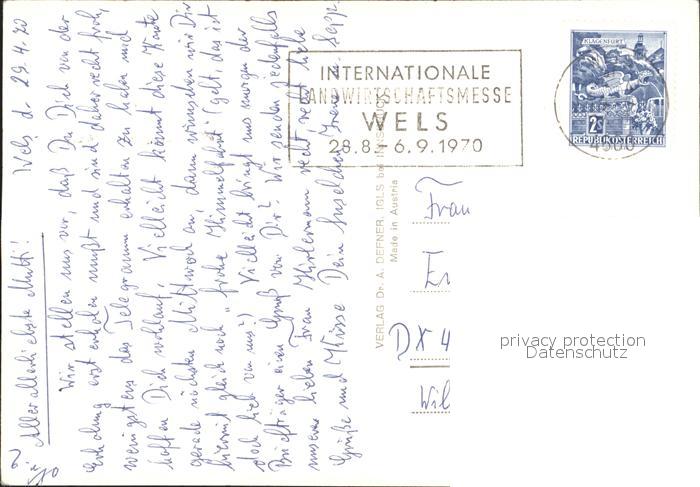 Wels, d. 29.4.70
Allerallerliebste Mutti!
Wir stellen uns vor, daß Du Dich von der
Erholung erst erholen mußt und sind daher recht froh,
wenigstens das Telegramm erhalten zu haben und
hoffen Dich wohlauf. Vielleicht kommt diese Karte
gerade nächsten Mittwoch an, dann wünschen wir Dir
hiermit gleich noch "frohe Himmelfahrt" (gelt, das ist
doch lieb von uns!) Vielleicht bringt uns morgen der
Briefträger einen Gruß von Dir? Wir senden jedenfalls
unserer lieben Frau recht recht liebe
Grüße und Küsse Dein Sepp.
INTERNATIONALE
LANDWIRTSCHAFTSMESSE
WELS
28.8.-6.9.1970
KLAGENFURT
2S
REPUBLIK ÖSTERREICH
VERLAG Dr. A. DEFNER, IGLS bei INNSBRUCK
Made in Austria
Frau
DX 4
Wil
privacy protection
Datenschutz